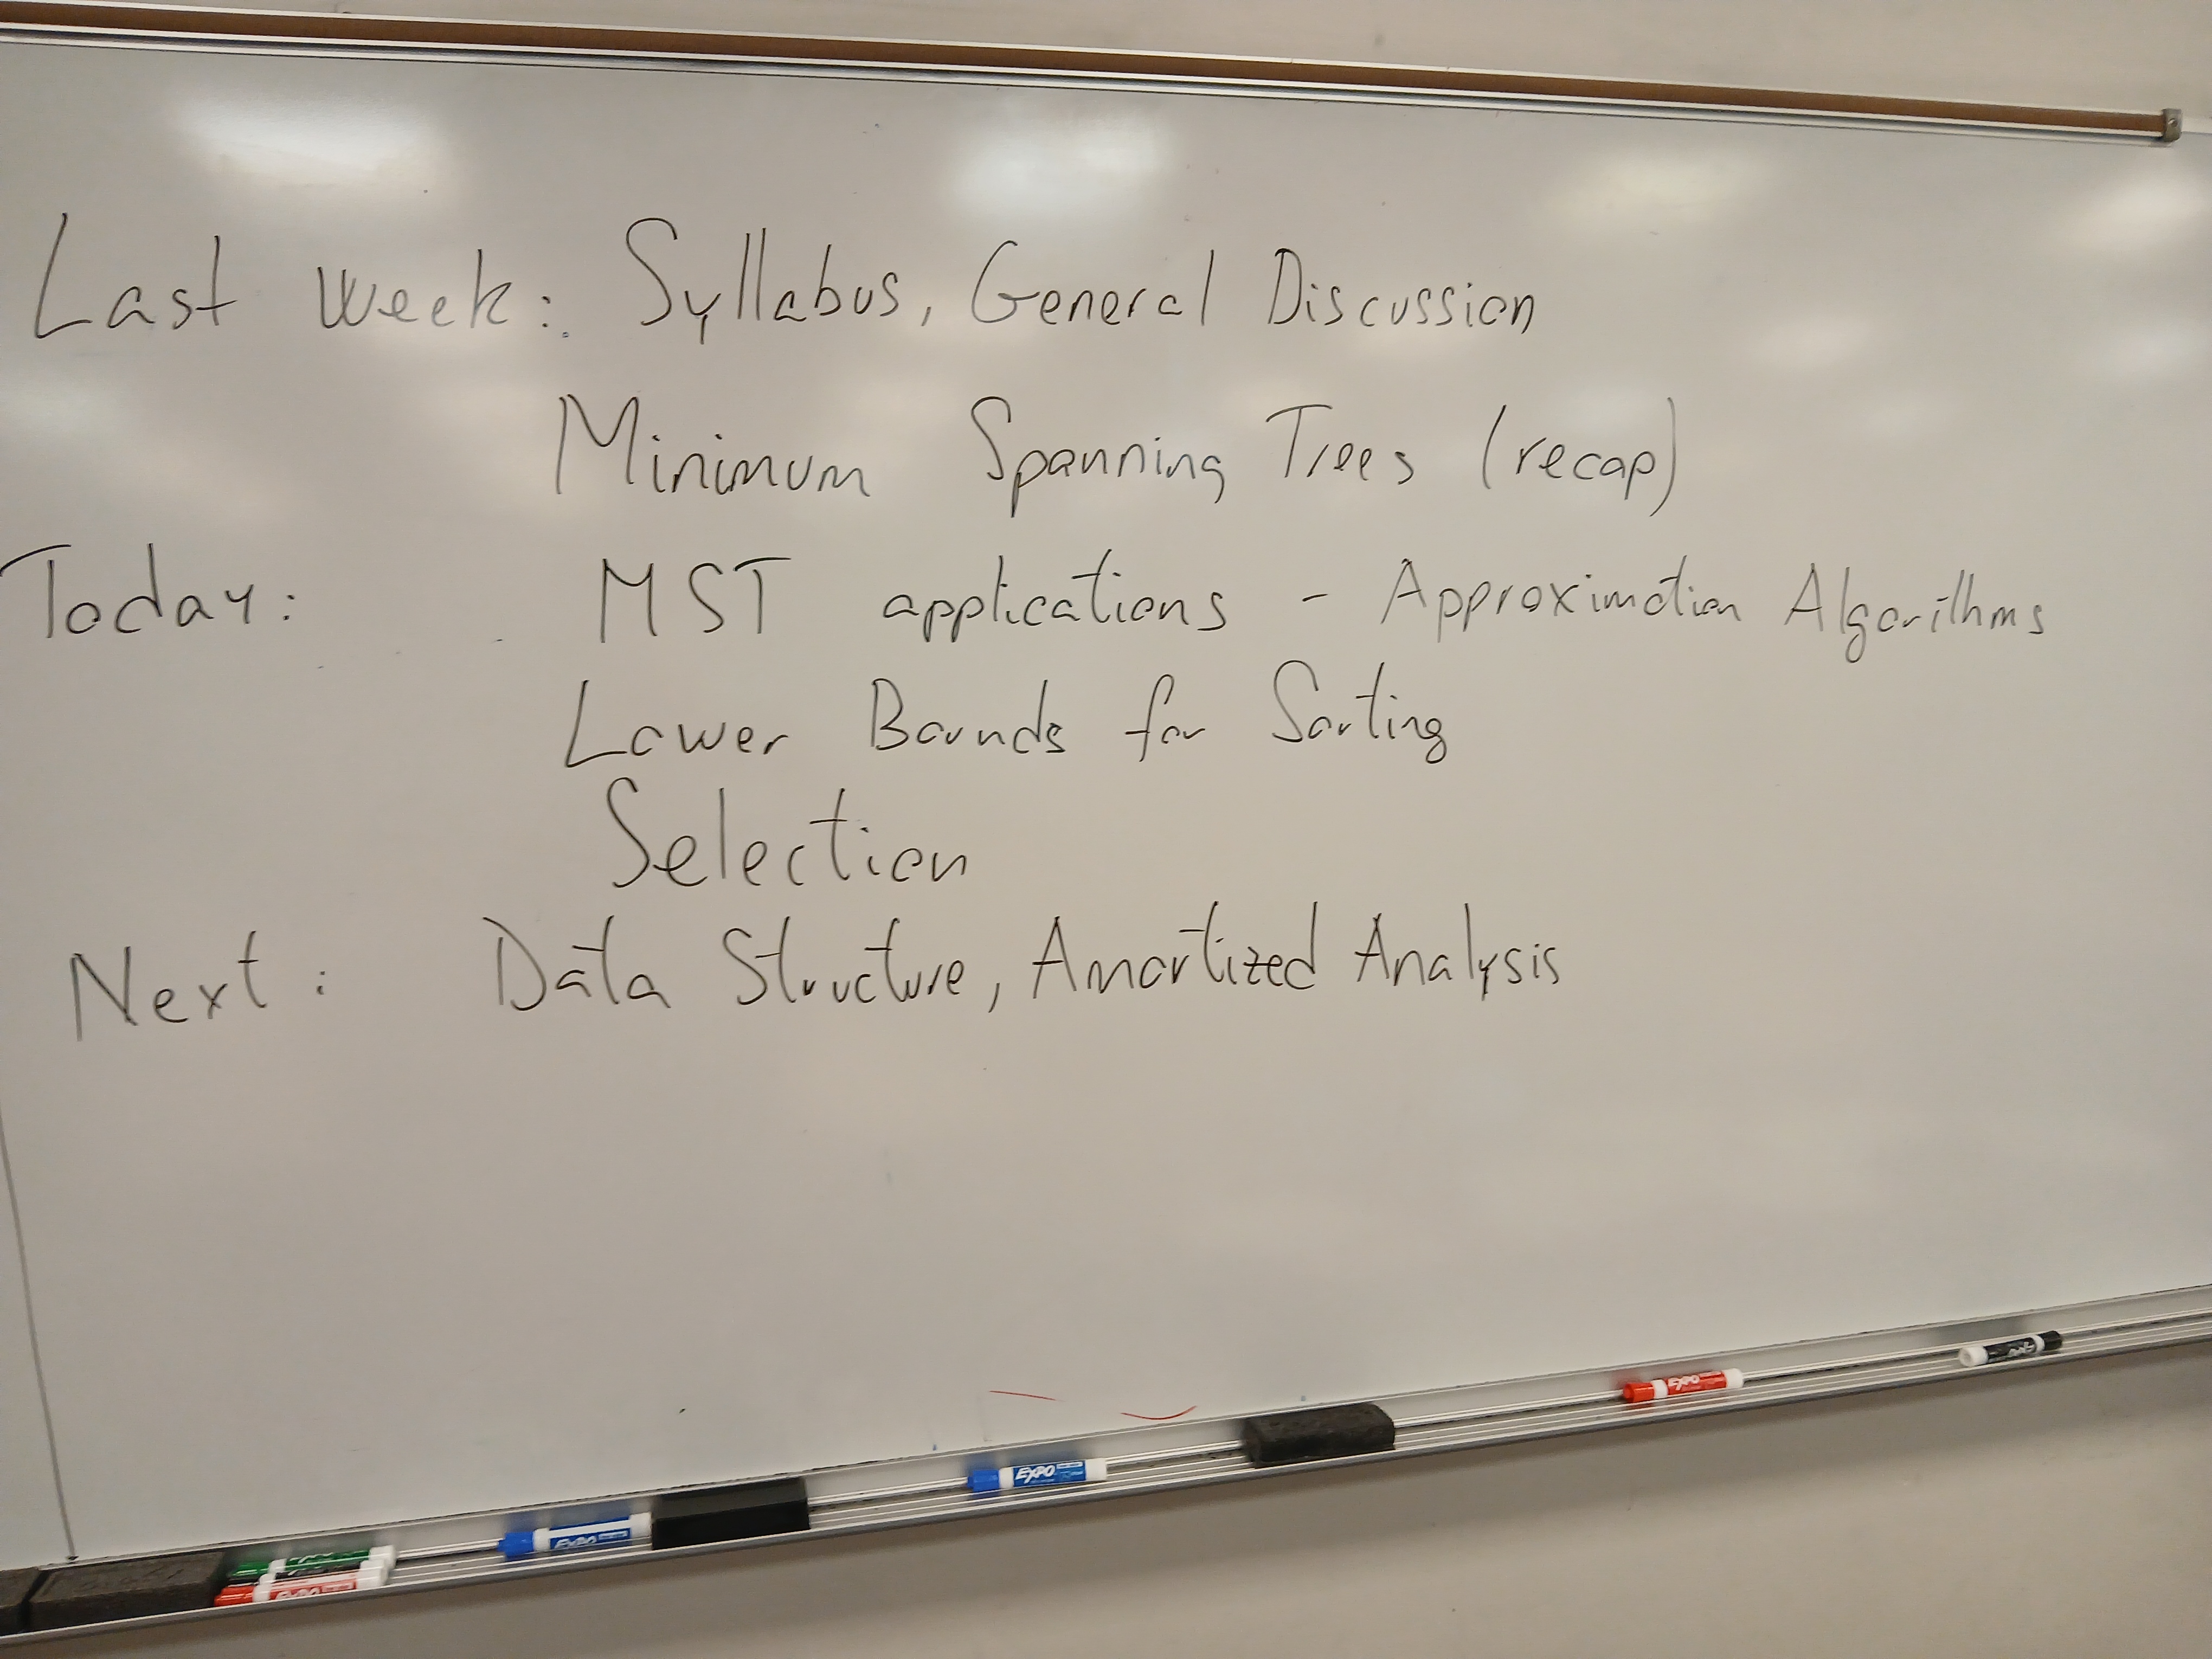 Last week: Syllabus, General Discussion
Minimum Spanning Trees (recap)
Today: MST applications - Approximation Algorithms
Lower Bounds for Sorting
Selection
Next: Data Structure, Amortized Analysis
EXPO
EXPO
EXPO
EXPO